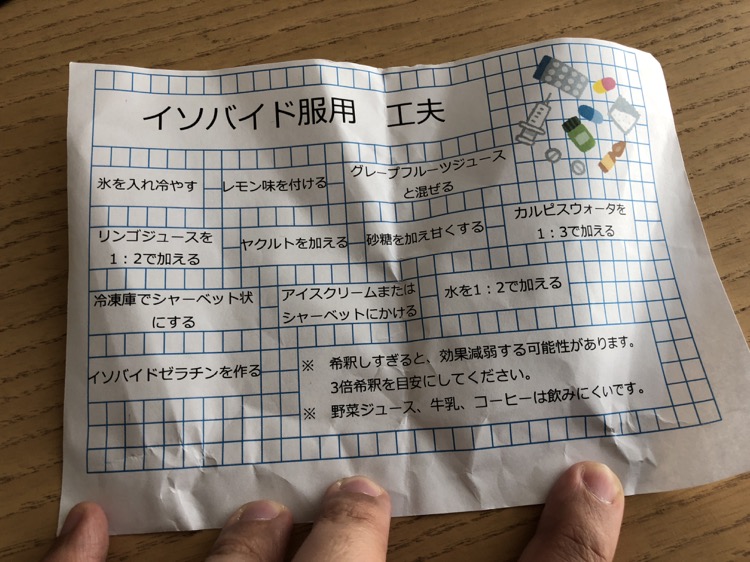 イソバイド服用　工夫
氷を入れ冷やす
レモン味を付ける
グレープフルーツジュース
と混ぜる
リンゴジュースを
1：2で加える
ヤクルトを加える
砂糖を加え甘くする
カルピスウォータを
1：3で加える
冷凍庫でシャーベット状
にする
アイスクリームまたは
シャーベットにかける
水を1：2で加える
イソバイドゼラチンを作る
※　希釈しすぎると、効果減弱する可能性があります。
3倍希釈を目安にしてください。
※　野菜ジュース、牛乳、コーヒーは飲みにくいです。